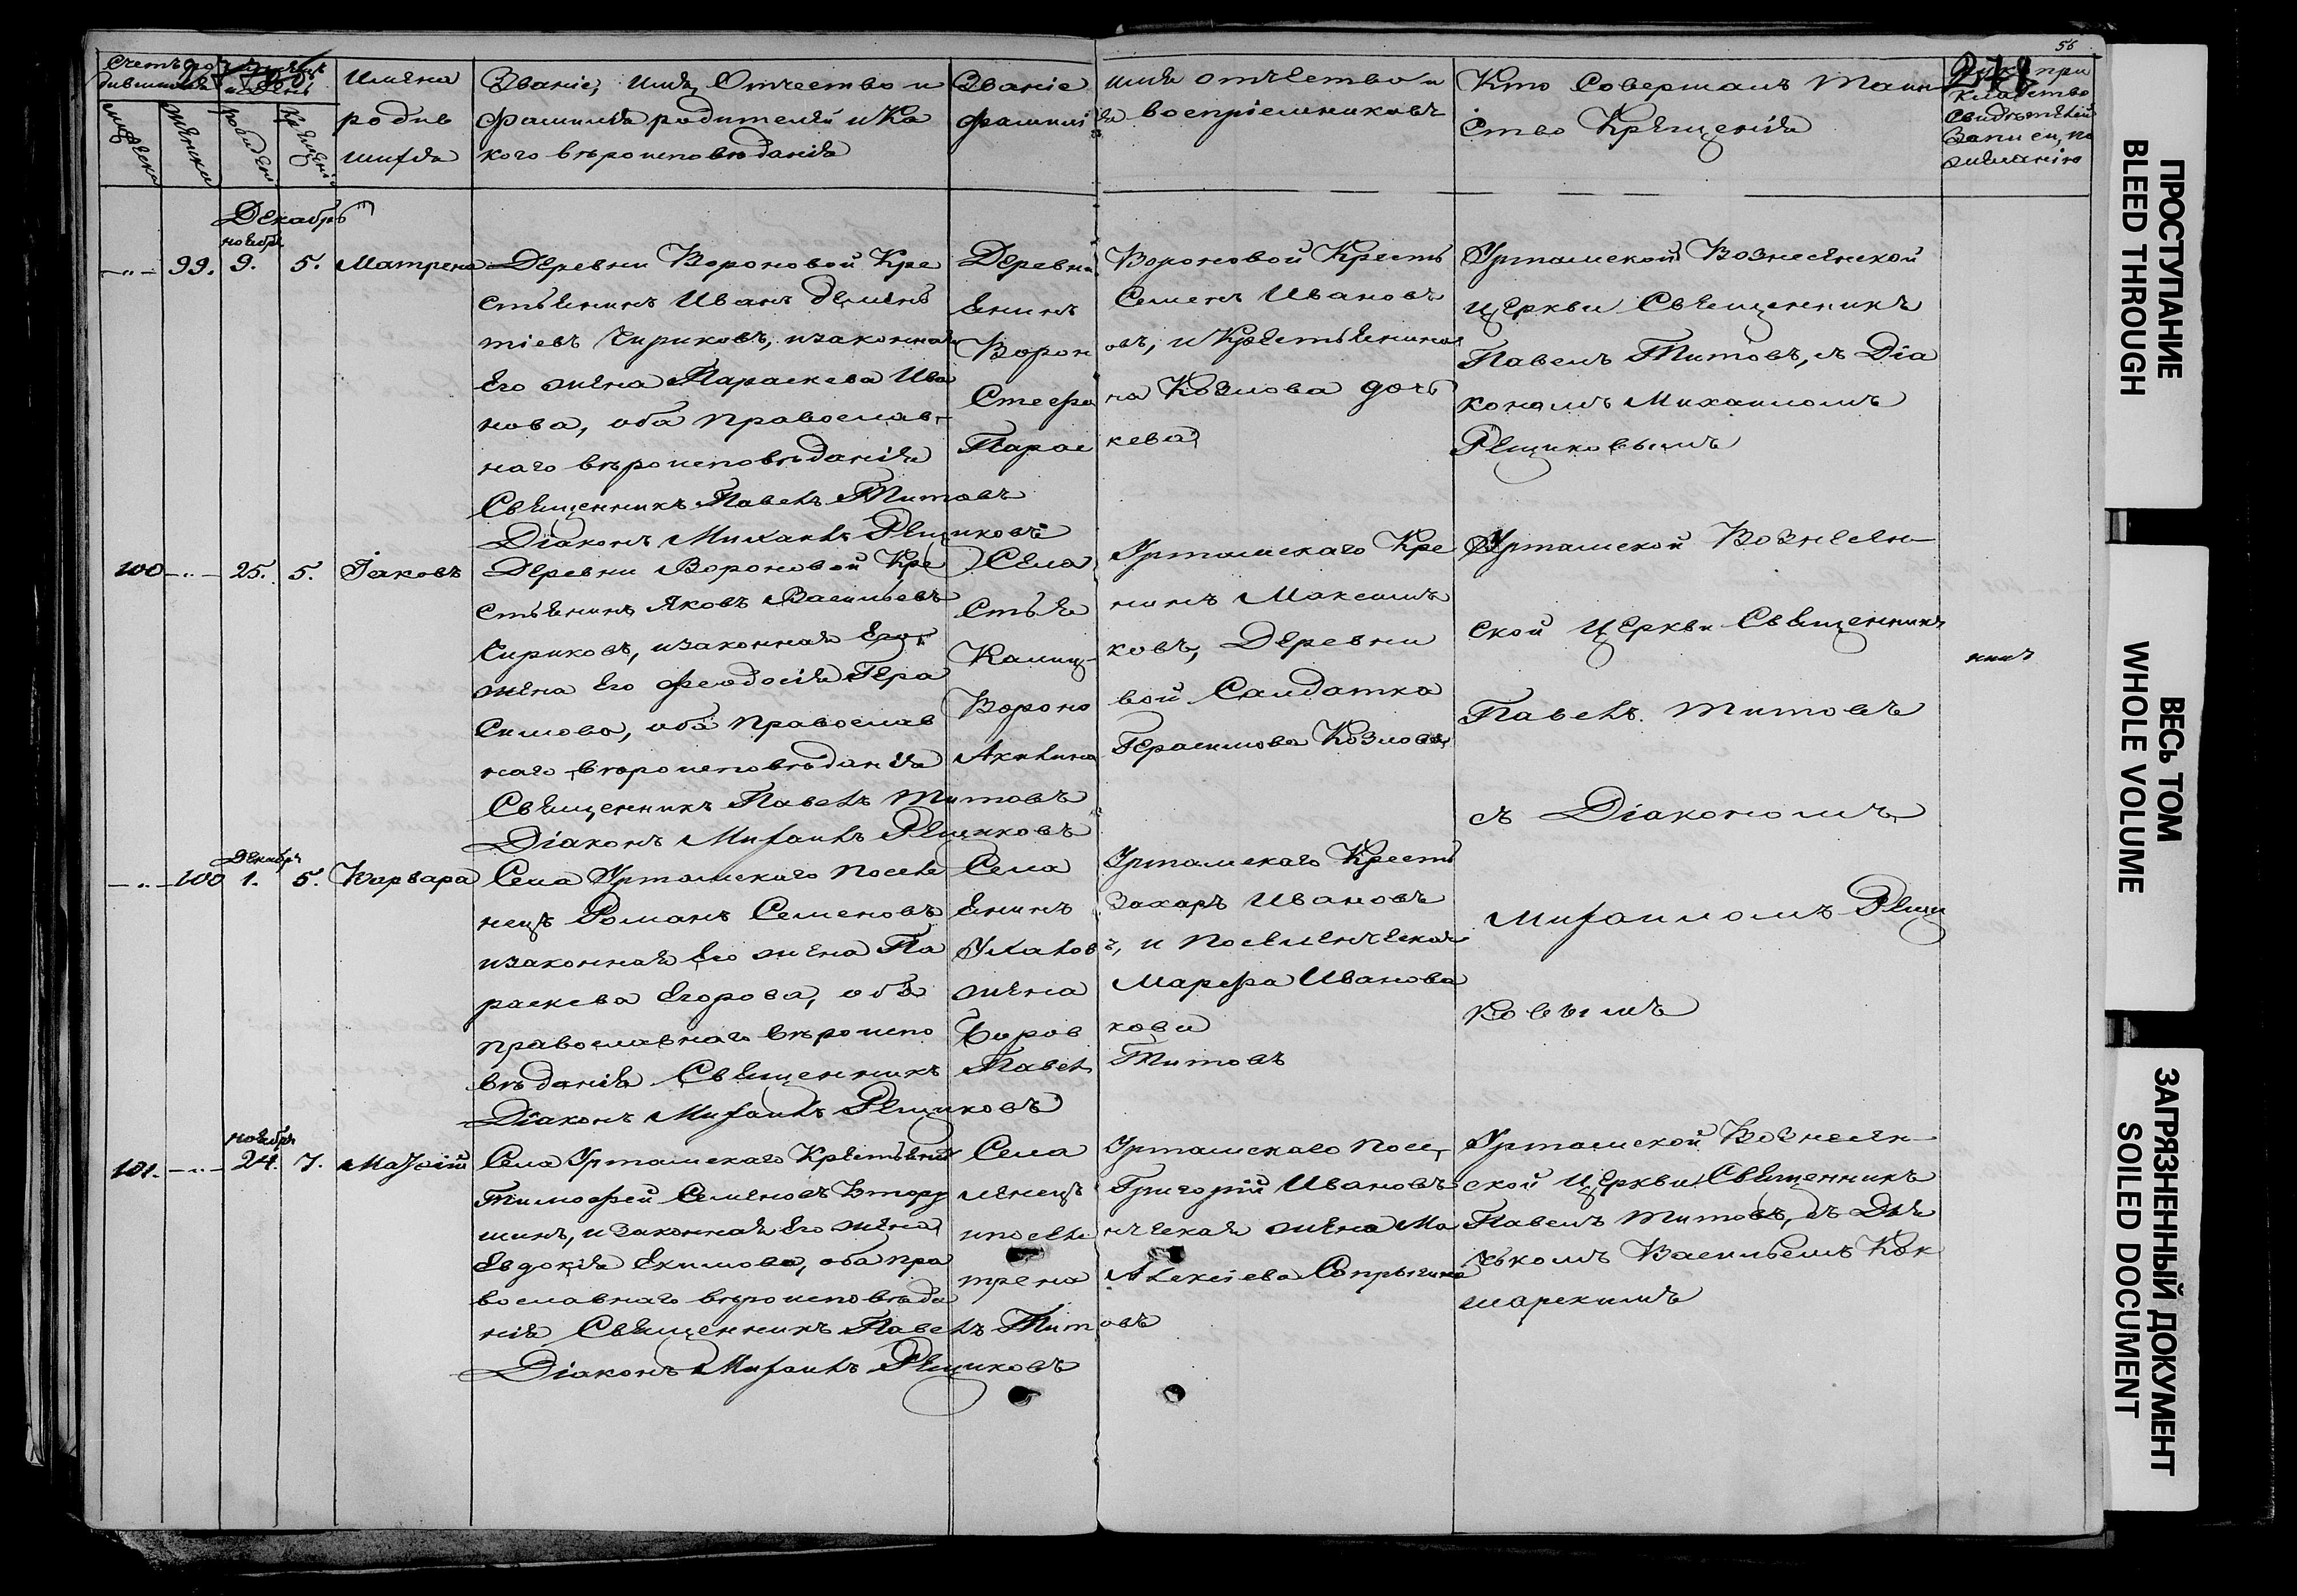 56
Счетъ ро
дившихся
мужеска
женска
Мѣсяцъ
и день
рожденія
крещенія
Имена
родив
шихся
Званіе, имя, Отчество и
фамилія родителей и Ка
кого вѣроисповѣданія
Званіе имя отчество и
фамилія воспріемниковъ
Кто Совершалъ Таин
ство Крещенія
Рукопри
кладство
Свидѣтелей
Записи, по
желанію
Декабрь
ноябрь
99. 9. 5. Матрена
Деревни Вороновой Кре
стьянинъ Иванъ Демен
тіевъ Чириковъ, изаконная
Его жена Параскева Ива
нова, оба православ-
наго вѣроисповѣданія
Священникъ Павелъ Титовъ
Діаконъ Михаилъ Рещиковъ
Деревни Вороновой Кресть
янинъ Семенъ Ивановъ
Вороновъ, и Крестьянина
Стефана Козлова дочь
Параскева
Уртамской Вознесенской
церкви Священникъ
Павелъ Титовъ, съ Діа
кономъ Михаиломъ
Рещиковымъ
100 25. 5. Іаковъ
Деревни Вороновой Кре
стьянинъ Яковъ Васильевъ
Чириковъ, изаконная Его
жена Его Феодосія Гера
симова, оба православ
наго вѣроисповѣданія
Священникъ Павелъ Титовъ
Діаконъ Михаилъ Рещиковъ
Села Уртамскаго Кре
стьянинъ Максимъ
ковъ, Деревни
Вороновой Салдатка
Акилина Герасимова Козлова
Уртамской Вознесен-
ской церкви Священникъ
Павелъ Титовъ
съ Діакономъ
Михаиломъ Рещи
ковымъ
Декабрь
100 1. 5. Варвара
Села Уртамскаго Посел
нецъ Романъ Семеновъ
изаконная Его жена Па
раскева Егорова, оба
православнаго вѣроиспо
вѣданія Священникъ Павелъ Титовъ
Діаконъ Михаилъ Рещиковъ
Села Уртамскаго Кресть
янинъ Захаръ Ивановъ
и поселенческая
жена Марфа Иванова
ноябрь
101. 24. 7.
Села Уртамскаго Крестьянинъ
Тимофей Семеновъ Втору
шинъ, и законная Его жена
Евдокія Екимова, оба пра
вославнаго вѣроисповѣда
нія Священникъ Павелъ Титовъ
Діаконъ Михаилъ Рещиковъ
Села Уртамскаго Посе
ленецъ Григорій Ивановъ
ипоселенческая жена Ма
трена Алексіева
Уртамской Вознесен-
ской церкви Священникъ
Павелъ Титовъ, съ Дья
чькомъ Васильемъ Кок
шарскимъ
ПРОСТУПАНИЕ
BLEED THROUGH
ВЕСЬ ТОМ
WHOLE VOLUME
ЗАГРЯЗНЕННЫЙ ДОКУМЕНТ
SOILED DOCUMENT